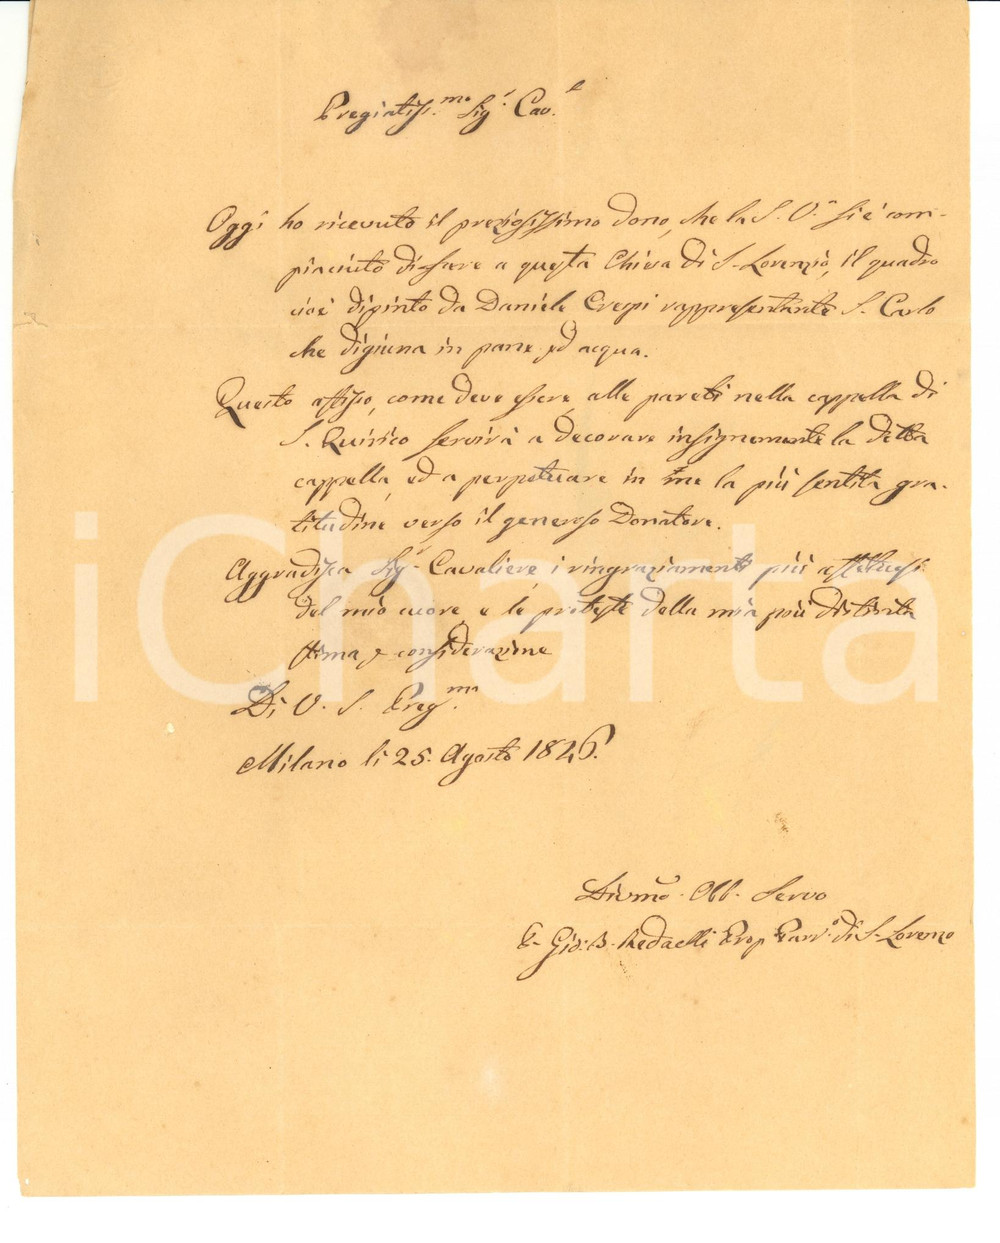 Pregiatiss.mo Sig.r Cav.e
Oggi ho ricevuto il preziosissimo dono, che la S. V.a si è com-
piaciuto di fare a questa Chiesa di S. Lorenzo, il quadro
cioè dipinto da Daniele Crespi rappresentante S. Carlo
che digiuna in pane ed acqua.
Questo affisso, come deve essere, alle pareti nella cappella di
S. Quirico servirà a decorare insignemente la detta
cappella, ed a perpetuare in me la più sentita gra-
titudine verso il generoso Donatore.
Aggradisca Sig.r Cavaliere i ringraziamenti più affettuosi
del mio cuore, e le proteste della mia più distinta
stima e considerazione
Di V. S. Preg.ma
Milano li 25. Agosto 1826.
Div.mo Obb. Servo
P. Gio: B. Redaelli Prop. Parr.o di S. Lorenzo
iCharta